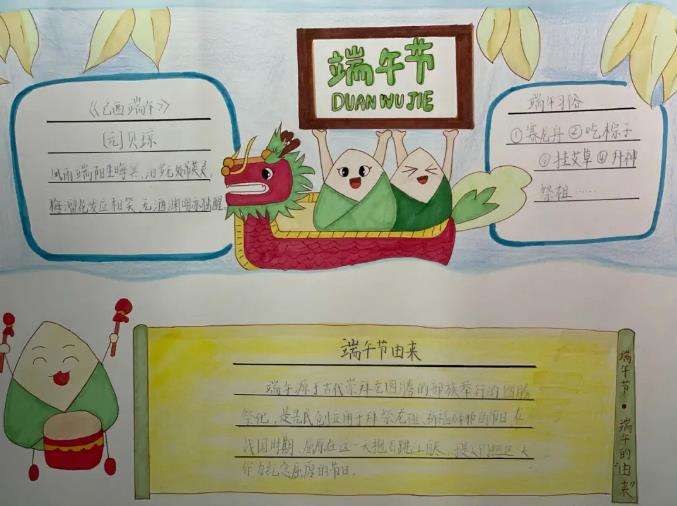 端午节
DUAN WU JIE
《己酉端午》
[元]贝琼
风雨端阳生晦冥，汨罗无处吊英灵，
海榴花发应相笑，无酒渊明亦独醒
端午习俗
①赛龙舟②吃粽子
③挂艾草④拜神
祭祖……
端午节由来
端午源于古代崇拜龙图腾的部族举行的图腾
祭祀，是先民创立用于拜祭龙祖、祈福辟邪的节日。
战国时期，屈原在这一天抱石跳
作为纪念屈原的节日。
端午节·端午的"由来"